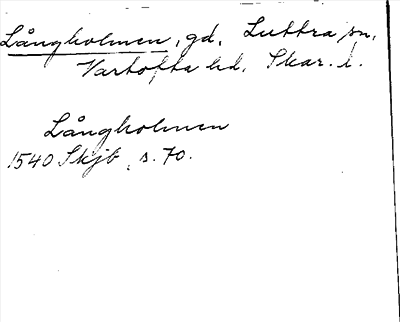 Långholmen, gd, Luttra sn,
Vartofta hd, Skar. l.
Långholmen
1540 Skjb, s. 70.